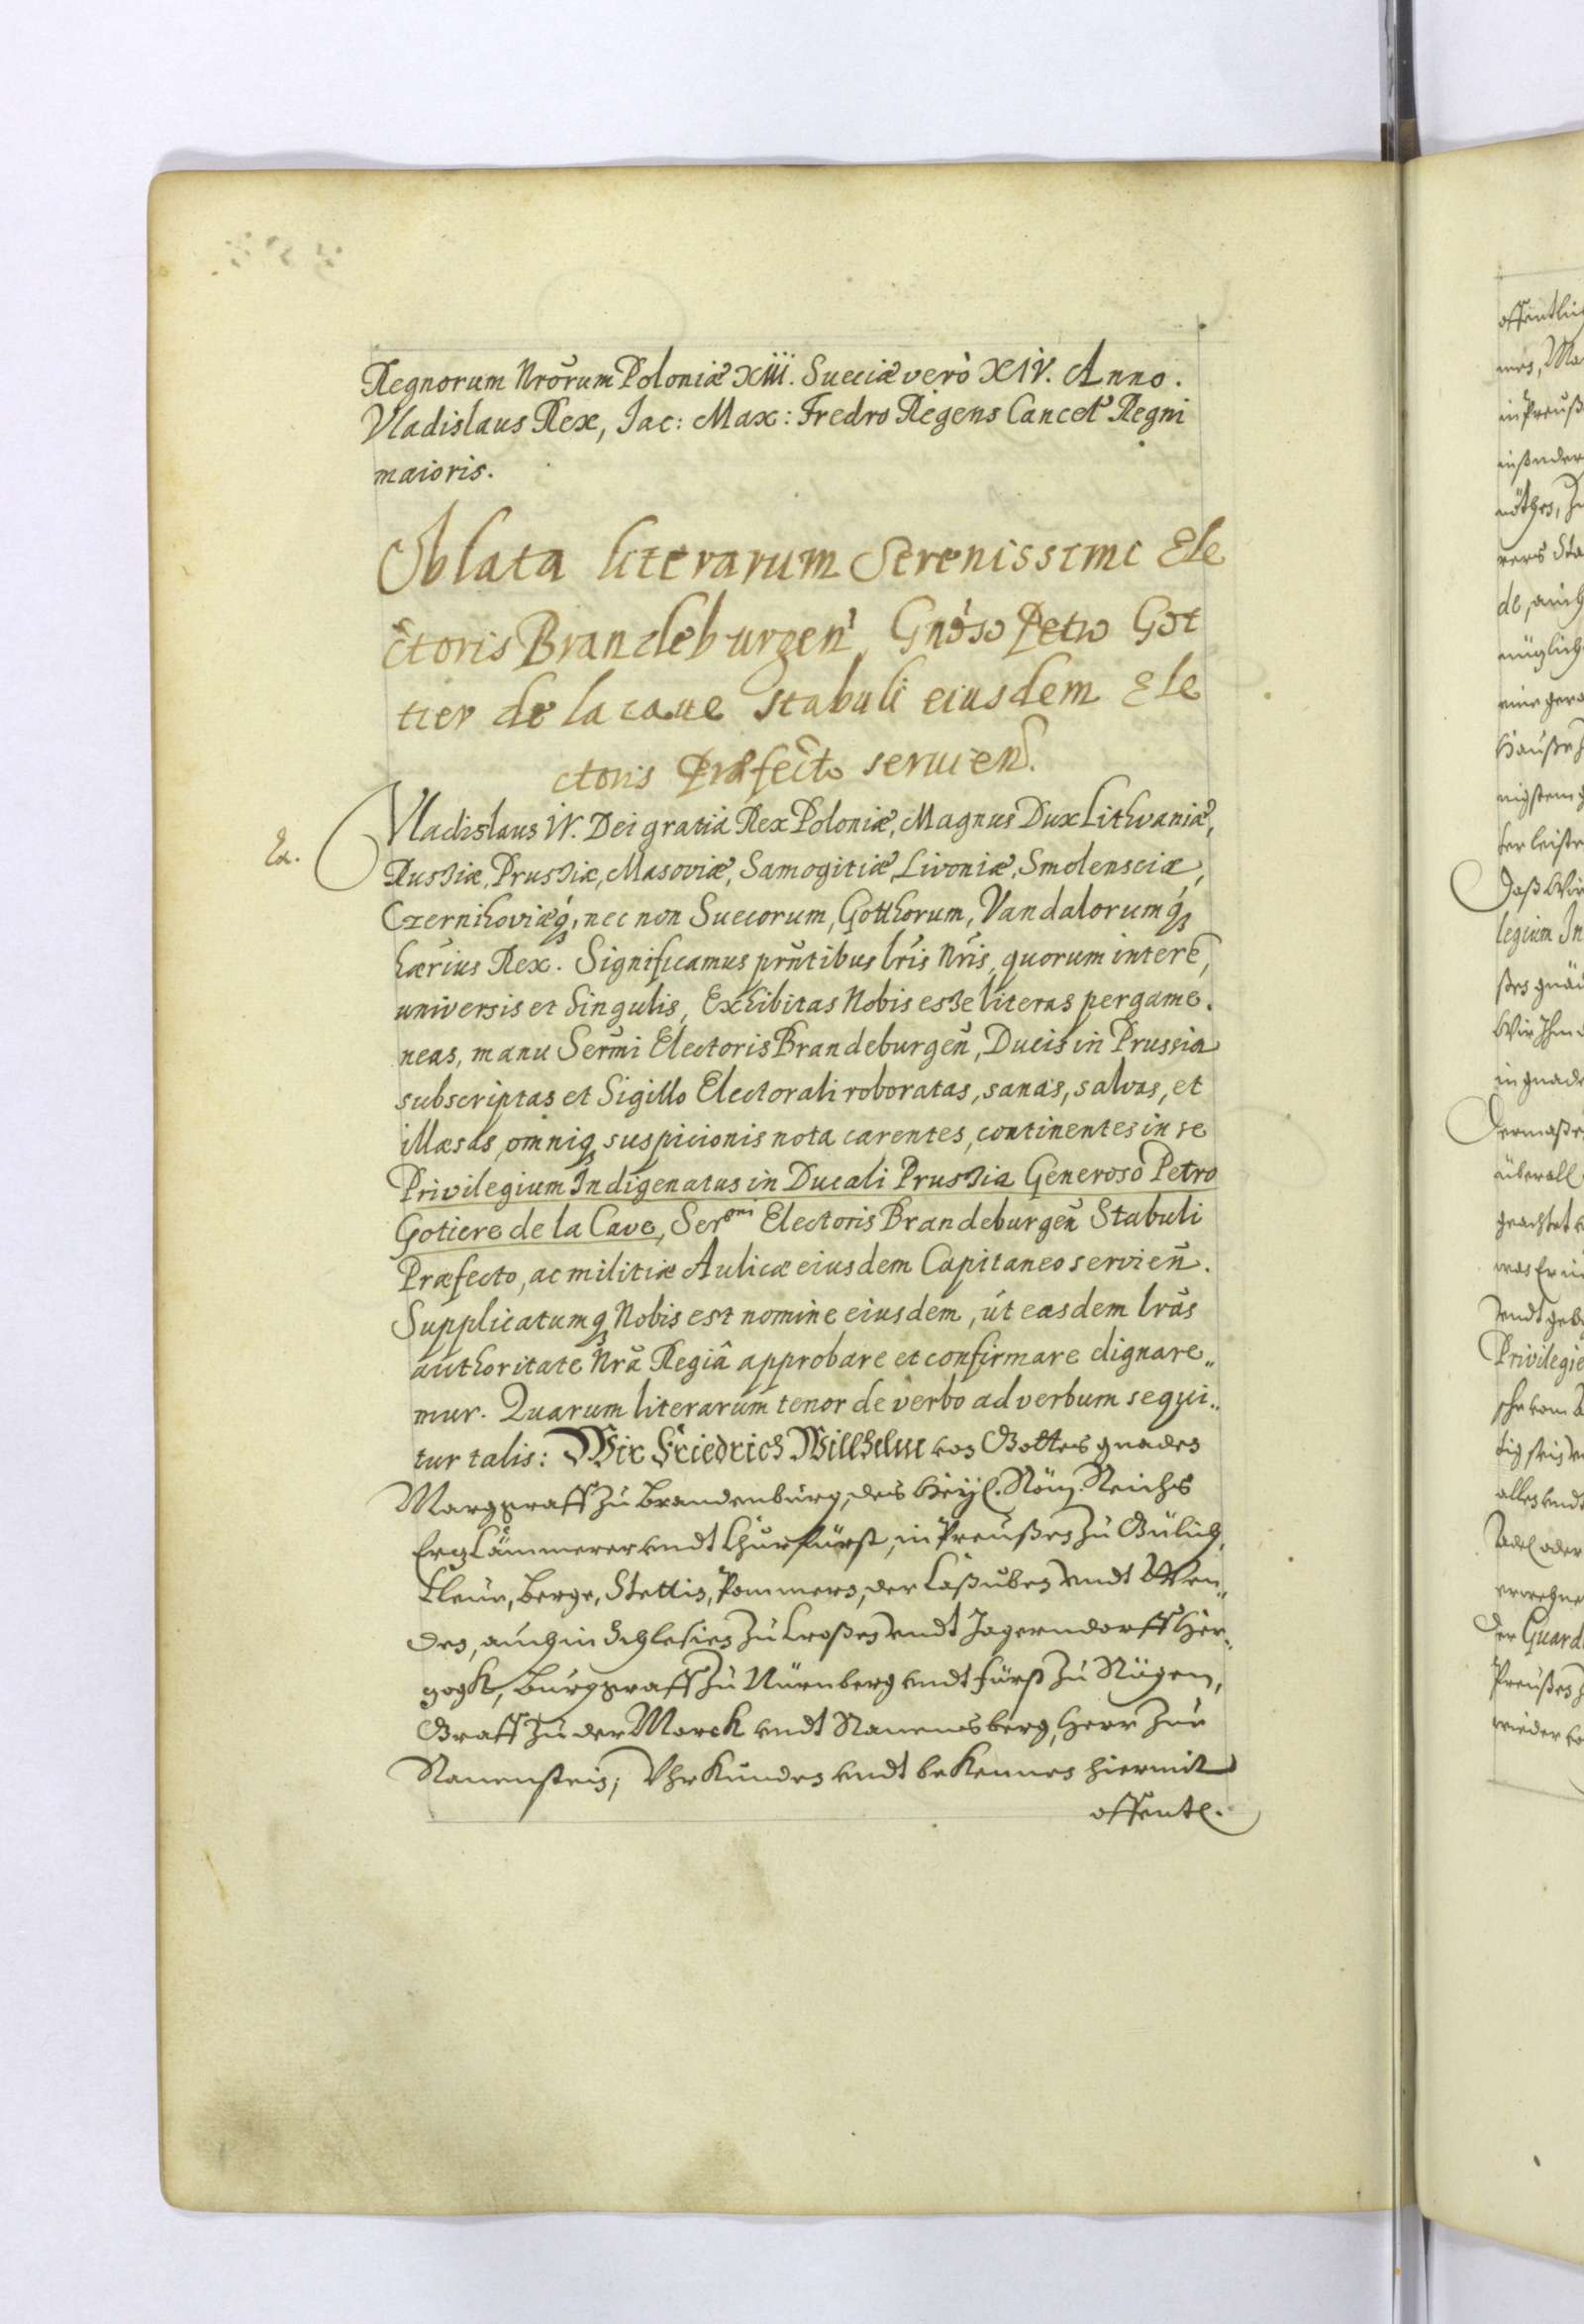 Regnorum Nrorum Poloniæ XIII. Sueciæ verò XIV. Anno.
Vladislaus Rex, Jac: Max: Fredro Regens Cancel. Regni
maioris.
Oblata literarum Serenissimi Ele
ctoris Brandeburgen Gnoso Petro Got
tier de la caue stabuli eiusdem Ele
ctoris Præfecto seruien.
Ex.
Vladislaus IV. Dei gratia Rex Poloniæ, Magnus Dux Lithvaniæ,
Russiæ, Prussiæ, Masoviæ, Samogitiæ, Livoniæ, Smolensciæ,
Czernihoviæq, nec non Suecorum, Gotthorum, Vandalorumq
hærius Rex. Significamus prntibus lris Nris, quorum intere,
universis et Singulis, Exhibitas Nobis esse literas pergame.
neas, manu Sermi Electoris Brandeburgen, Ducis in Prussia
subscriptas et Sigillo Electorali roboratas, sanas, salvas, et
illæsas, omniq suspicionis nota carentes, continentes in se
Privilegium Indigenatus in Ducali Prussia Generoso Petro
Gotiere de la Cave, Ser^mi Electoris Brandeburgen Stabuli
Præfecto, ac militiæ Aulicæ eiusdem Capitaneo servien.
Supplicatumq Nobis est nomine eiusdem, út easdem lras
authoritate Nra Regiâ approbare et confirmare dignare„
mur. Quarum literarum tenor de verbo ad verbum sequi„
tur talis: Wir Friedrich Willhelm von Gottes gnaden
Marggraff zu Brandenburg, des Heyl. Röm. Reichs
Ertz Cämmerer undt Churfürst, in Preußen zu Gülich,
Cleve, Berge, Stettin, Pommern, der Caßuben undt Wen„
den, auch in Schlesien zu Croßen undt Jagerndorff Her„
zogk, Burggraff zu Nürnberg undt Fürst zu Rügen,
Graff zu der Marck undt Ravensberg, Herr zur
Ravenstein; Uhrkunden undt bekennen hiermit
offentl.